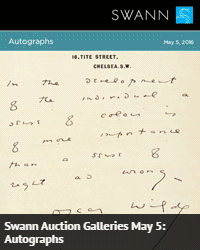 SWANN
Autographs May 5, 2016
16, TITE STREET,
CHELSEA. S.W.
In the development
of the individual a
sense of colour is
of more importance
than a sense of
right and wrong.
Oscar Wilde
Swann Auction Galleries May 5:
Autographs